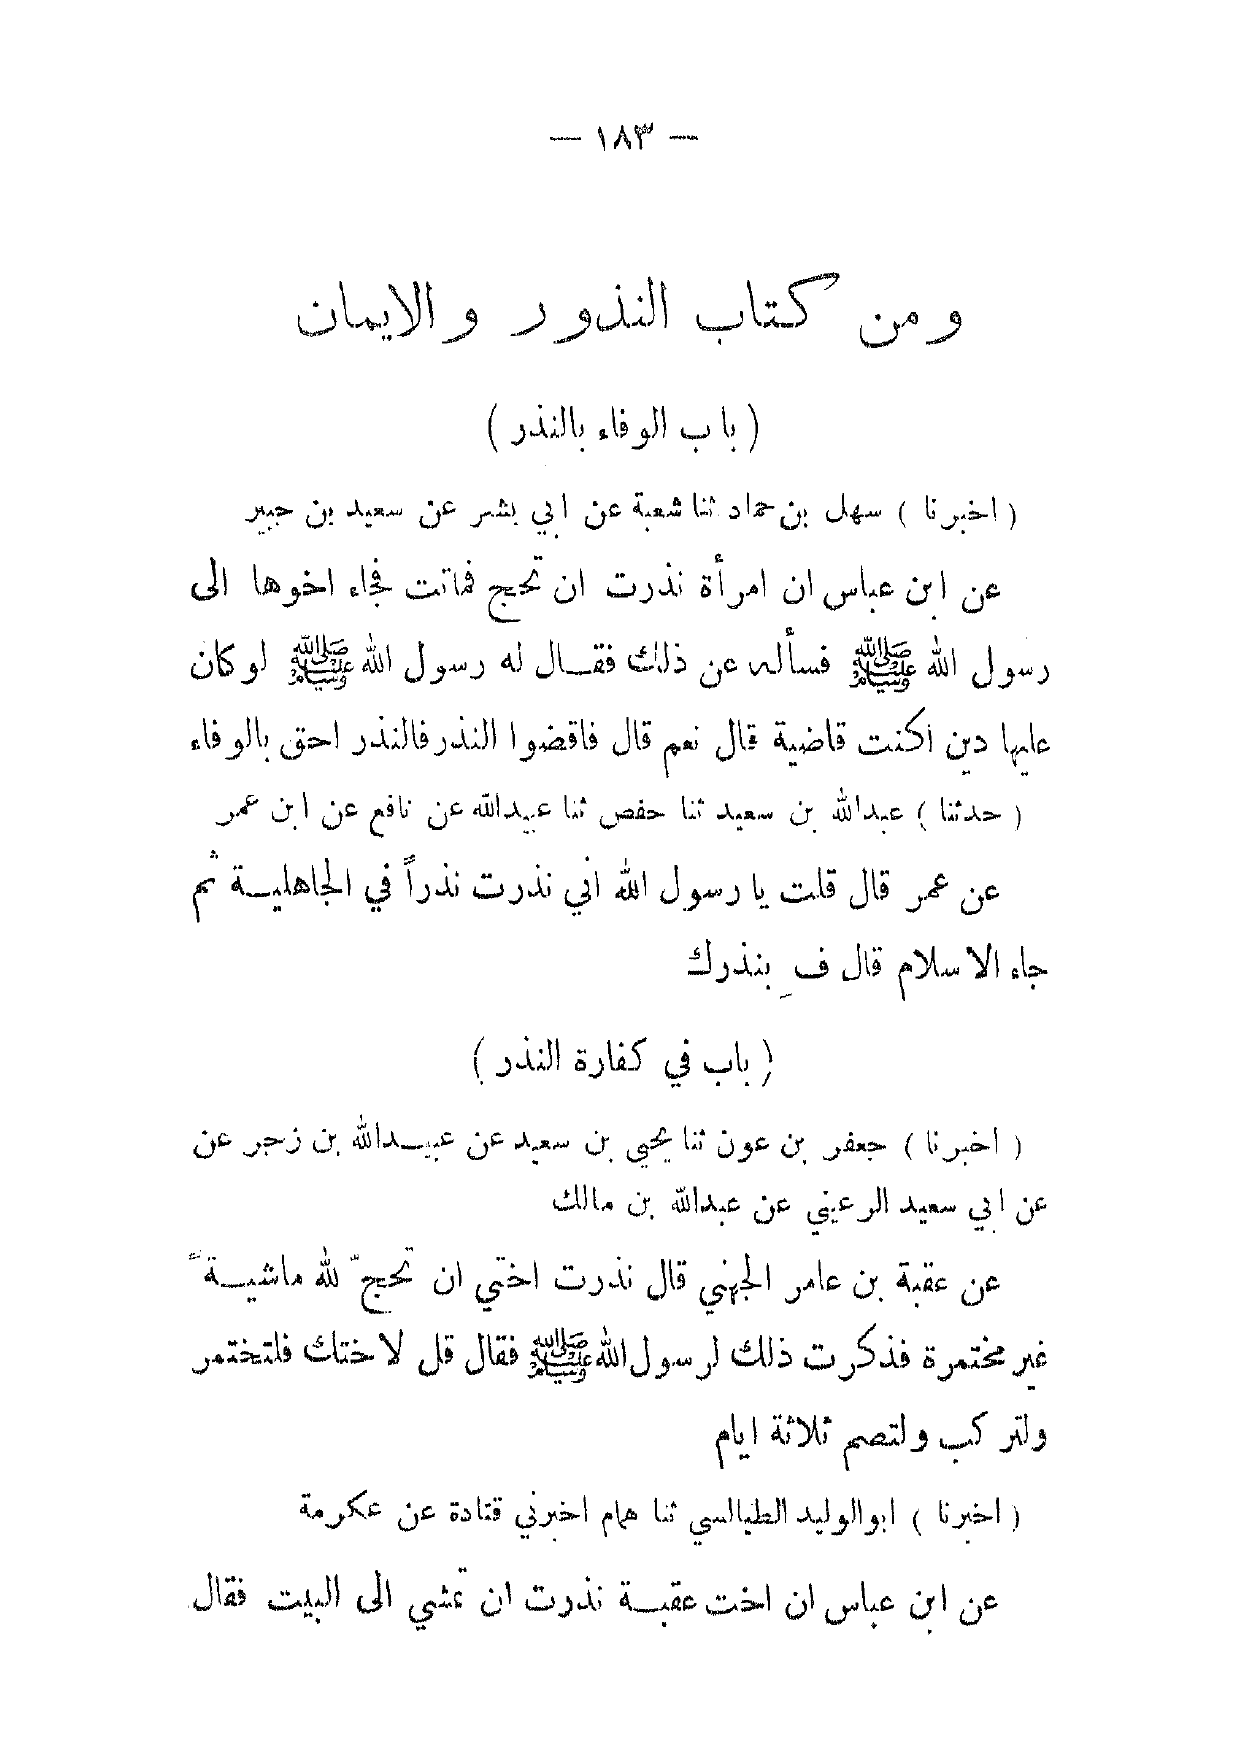 — ١٨٣ —
ومن كتاب النذور والايمان
( باب الوفاء بالنذر )
( اخبرنا ) سهل بن حماد ثنا شعبة عن ابي بشر عن سعيد بن جبير
عن ابن عباس ان امرأة نذرت ان تحج فماتت فجاء اخوها الى
رسول الله ﷺ فسأله عن ذلك فقال له رسول الله ﷺ لو كان
عليها دين أكنت قاضية قال نعم قال فاقضوا النذر فالنذر احق بالوفاء
( حدثنا ) عبدالله بن سعيد ثنا حفص ثنا عبيدالله عن نافع عن ابن عمر
عن عمر قال قلت يا رسول الله اني نذرت نذراً في الجاهلية ثم
جاء الاسلام قال فِ بنذرك
( باب في كفارة النذر )
( اخبرنا ) جعفر بن عون ثنا يحيى بن سعيد عن عبيدالله بن زجر عن
عن ابي سعيد الرعيني عن عبدالله بن مالك
عن عقبة بن عامر الجهني قال نذرت اختي ان تحجّ لله ماشيةً
غير مختمرة فذكرت ذلك لرسول الله ﷺ فقال قل لاختك فلتختمر
ولتركب ولتصم ثلاثة ايام
( اخبرنا ) ابوالوليد الطيالسي ثنا همام اخبرني قتادة عن عكرمة
عن ابن عباس ان اخت عقبة نذرت ان تمشي الى البيت فقال